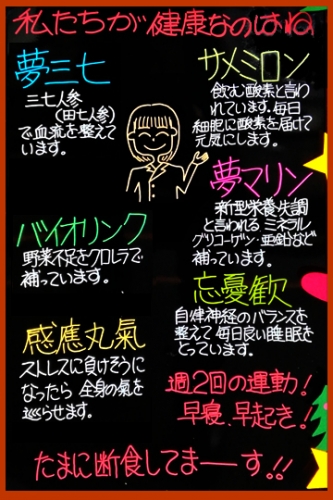 私たちが健康なのはね
夢三七
三七人参
(田七人参)
で血流を整えて
います。
サメミロン
飲む酸素と言わ
れています。毎日
細胞に酸素を届けて
元気にします。
夢マリン
新型栄養失調
と言われる ミネラル
グリコーゲン・亜鉛など
補っています。
バイオリンク
野菜不足をクロレラで
補っています。
忘憂歓
自律神経のバランスを
整えて 毎日良い睡眠を
とっています。
感應丸氣
ストレスに負けそうに
なったら 全身の氣を
巡らせます。
週2回の運動!
早寝、早起き!
たまに断食してまーす!!